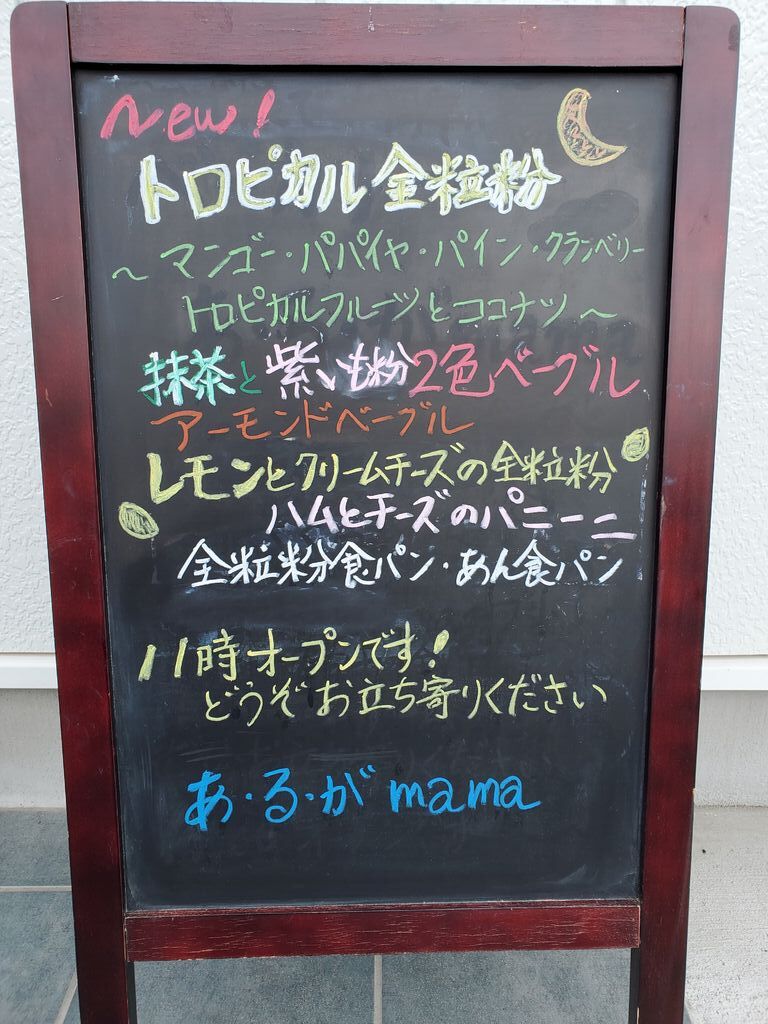 New!
トロピカル全粒粉
～マンゴー・パパイヤ・パイン・クランベリー
トロピカルフルーツとココナツ～
抹茶と紫いも粉2色ベーグル
アーモンドベーグル
レモンとクリームチーズの全粒粉
ハムとチーズのパニーニ
全粒粉食パン・あん食パン
11時オープンです!
どうぞお立ち寄りください
あ・る・が mama